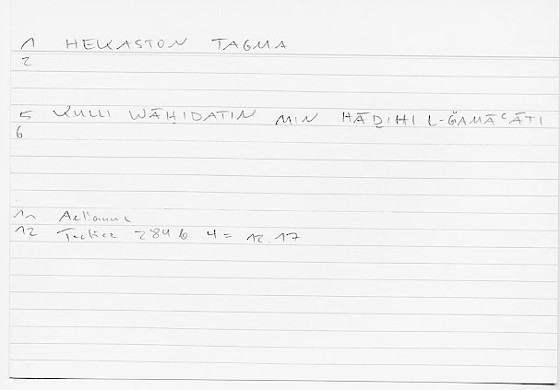 1 HEKASTON TAGMA
2
5 KULLI WĀḤIDATIN MIN HĀḎIHI L-ǦAMĀʿĀTI
6
11 Aelianus
12 Tactica 284 b 4 = 12.17